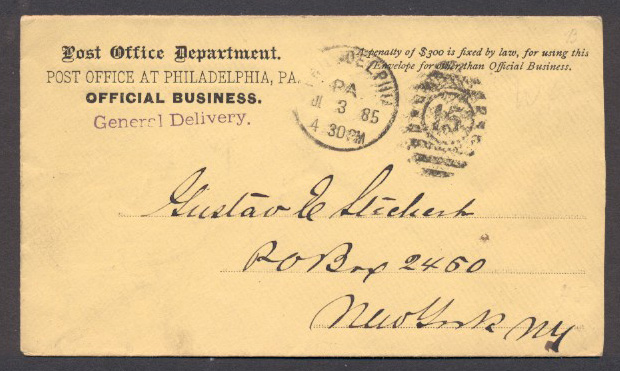 Post Office Department.
POST OFFICE AT PHILADELPHIA, PA.
OFFICIAL BUSINESS.
General Delivery.
A penalty of $300 is fixed by law, for using this
Envelope for other than Official Business.
PHILADELPHIA
PA.
3 85
4 30PM
15
Gustav E Stechert
P O Box 2460
New York NY